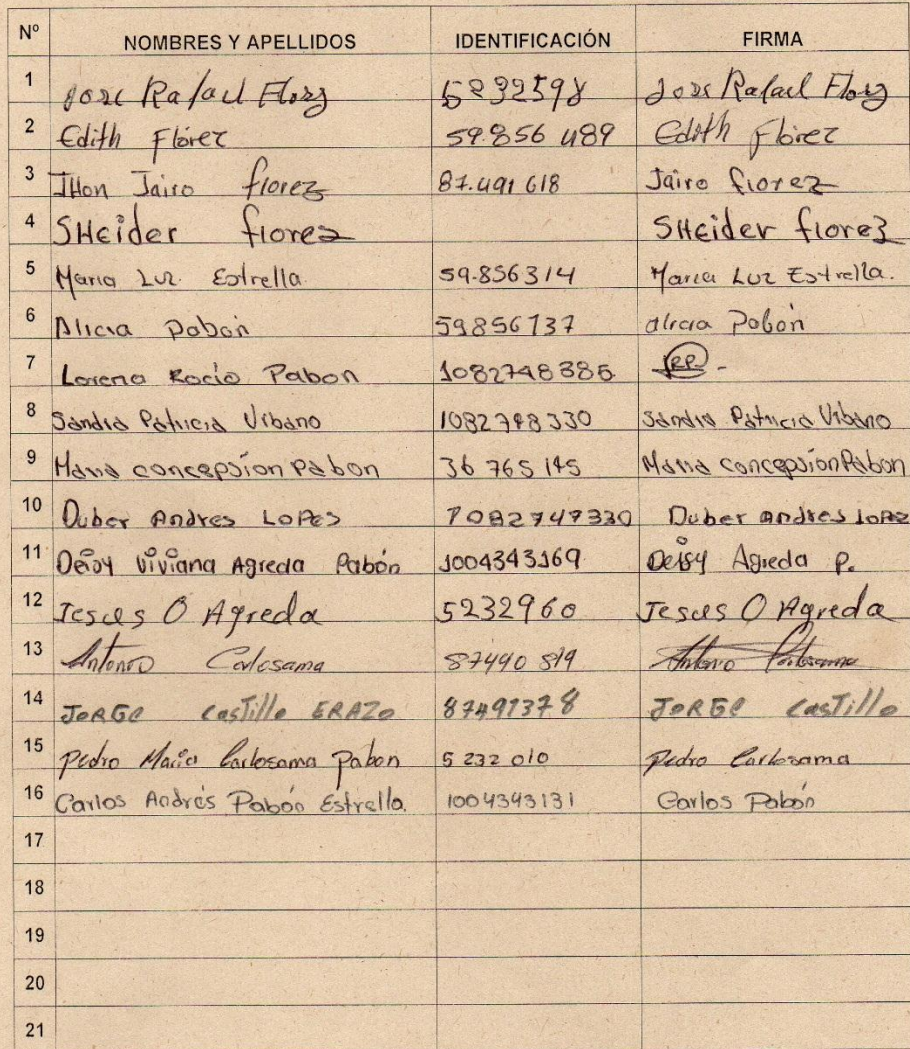 Nº NOMBRES Y APELLIDOS IDENTIFICACIÓN FIRMA
1 Jose Rafael Florz 5232598 Jose Rafael Florz
2 Edith Flórez 59.856 489 Edith Flórez
3 JHon Jairo florez 87.491 618 Jairo florez
4 SHeider florez SHeider florez
5 Maria Luz Estrella. 59.856314 Maria Luz Estrella.
6 Alicia Pabón 59856137 alicia Pabón
7 Lorena Rocío Pabon 1082748386
8 Sandra Patricia Urbano 1082748330 Sandra Patricia Urbano
9 Maria concepsion Pabon 36 765 145 Maria concepsion Pabon
10 Duber Andres Lopes 1082747330 Duber andres lopez
11 Deisy Viviana Agreda Pabón 1004343169 Deisy Agreda P.
12 Jesus O Agreda 5232960 Jesus O Agreda
13 Antonio Carlosama 87490 819 Antonio Carlosama
14 JORGe casTillo ERAZo 87491378 JORGe casTillo
15 Pedro Maria Carlosama pabon 5 232 010 Pedro Carlosama
16 Carlos Andrés Pabón Estrella. 1004343131 Carlos Pabón
17
18
19
20
21